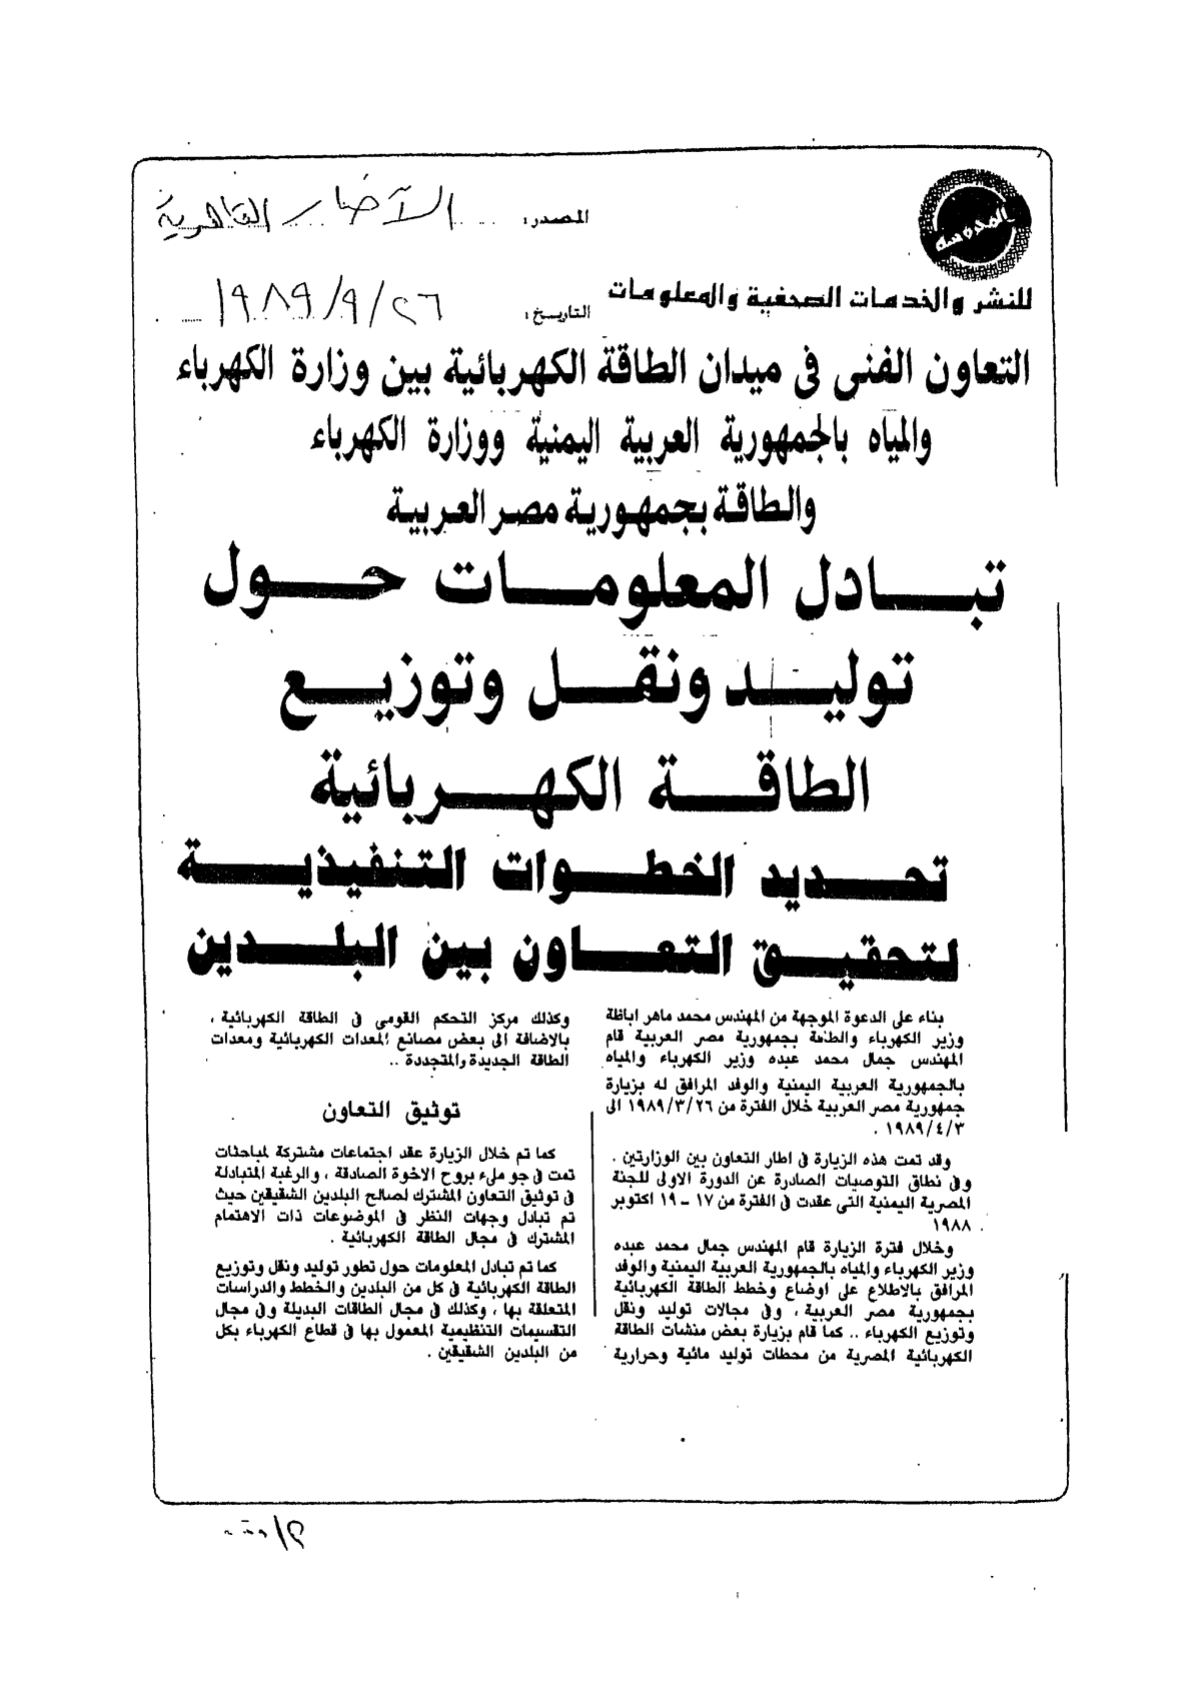 المحروسة
للنشر والخدمات الصحفية والمعلومات
المصدر: الأخبار القاهرية
التاريخ: ٢٦/٩/١٩٨٩
التعاون الفنى فى ميدان الطاقة الكهربائية بين وزارة الكهرباء
والمياه بالجمهورية العربية اليمنية ووزارة الكهرباء
والطاقة بجمهورية مصر العربية
تبادل المعلومات حول
توليد ونقل وتوزيع
الطاقة الكهربائية
تحديد الخطوات التنفيذية
لتحقيق التعاون بين البلدين
بناء على الدعوة الموجهة من المهندس محمد ماهر اباظة
وزير الكهرباء والطاقة بجمهورية مصر العربية قام
المهندس جمال محمد عبده وزير الكهرباء والمياه
بالجمهورية العربية اليمنية والوفد المرافق له بزيارة
جمهورية مصر العربية خلال الفترة من ٢٦/٣/١٩٨٩ الى
٣/٤/١٩٨٩ .
وقد تمت هذه الزيارة فى اطار التعاون بين الوزارتين .
وفى نطاق التوصيات الصادرة عن الدورة الاولى للجنة
المصرية اليمنية التى عقدت فى الفترة من ١٧ - ١٩ اكتوبر
١٩٨٨ .
وخلال فترة الزيارة قام المهندس جمال محمد عبده
وزير الكهرباء والمياه بالجمهورية العربية اليمنية والوفد
المرافق بالاطلاع على اوضاع وخطط الطاقة الكهربائية
بجمهورية مصر العربية ، وفى مجالات توليد ونقل
وتوزيع الكهرباء .. كما قام بزيارة بعض منشات الطاقة
الكهربائية المصرية من محطات توليد مائية وحرارية
وكذلك مركز التحكم القومى فى الطاقة الكهربائية ،
بالاضافة الى بعض مصانع المعدات الكهربائية ومعدات
الطاقة الجديدة والمتجددة ..
توثيق التعاون
كما تم خلال الزيارة عقد اجتماعات مشتركة لمباحثات
تمت فى جو ملىء بروح الاخوة الصادقة ، والرغبة المتبادلة
فى توثيق التعاون المشترك لصالح البلدين الشقيقين حيث
تم تبادل وجهات النظر فى الموضوعات ذات الاهتمام
المشترك فى مجال الطاقة الكهربائية .
كما تم تبادل المعلومات حول تطور توليد ونقل وتوزيع
الطاقة الكهربائية فى كل من البلدين والخطط والدراسات
المتعلقة بها ، وكذلك فى مجال الطاقات البديلة وفى مجال
التقسيمات التنظيمية المعمول بها فى قطاع الكهرباء بكل
من البلدين الشقيقين .